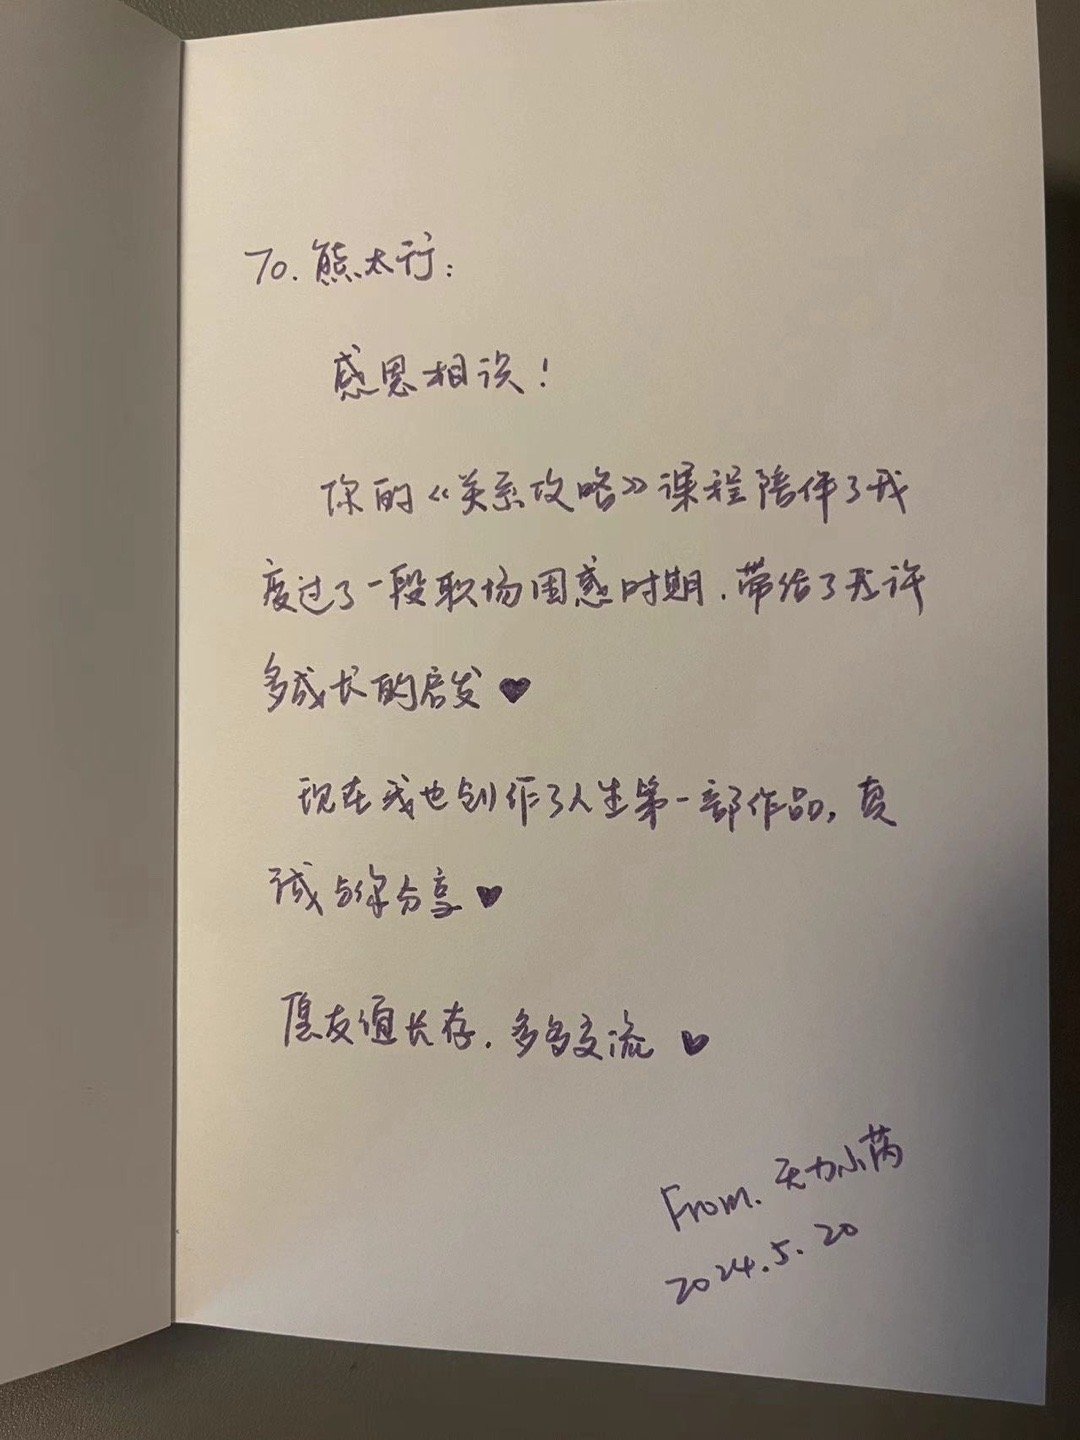 To. 熊太行：
感恩相识！
你的《关系攻略》课程陪伴了我
度过了一段职场困惑时期，带给了我许
多成长的启发♥
现在我也创作了人生第一部作品，真
诚与你分享♥
愿友谊长存，多多交流♥
From. 天力小芮
2024.5.20